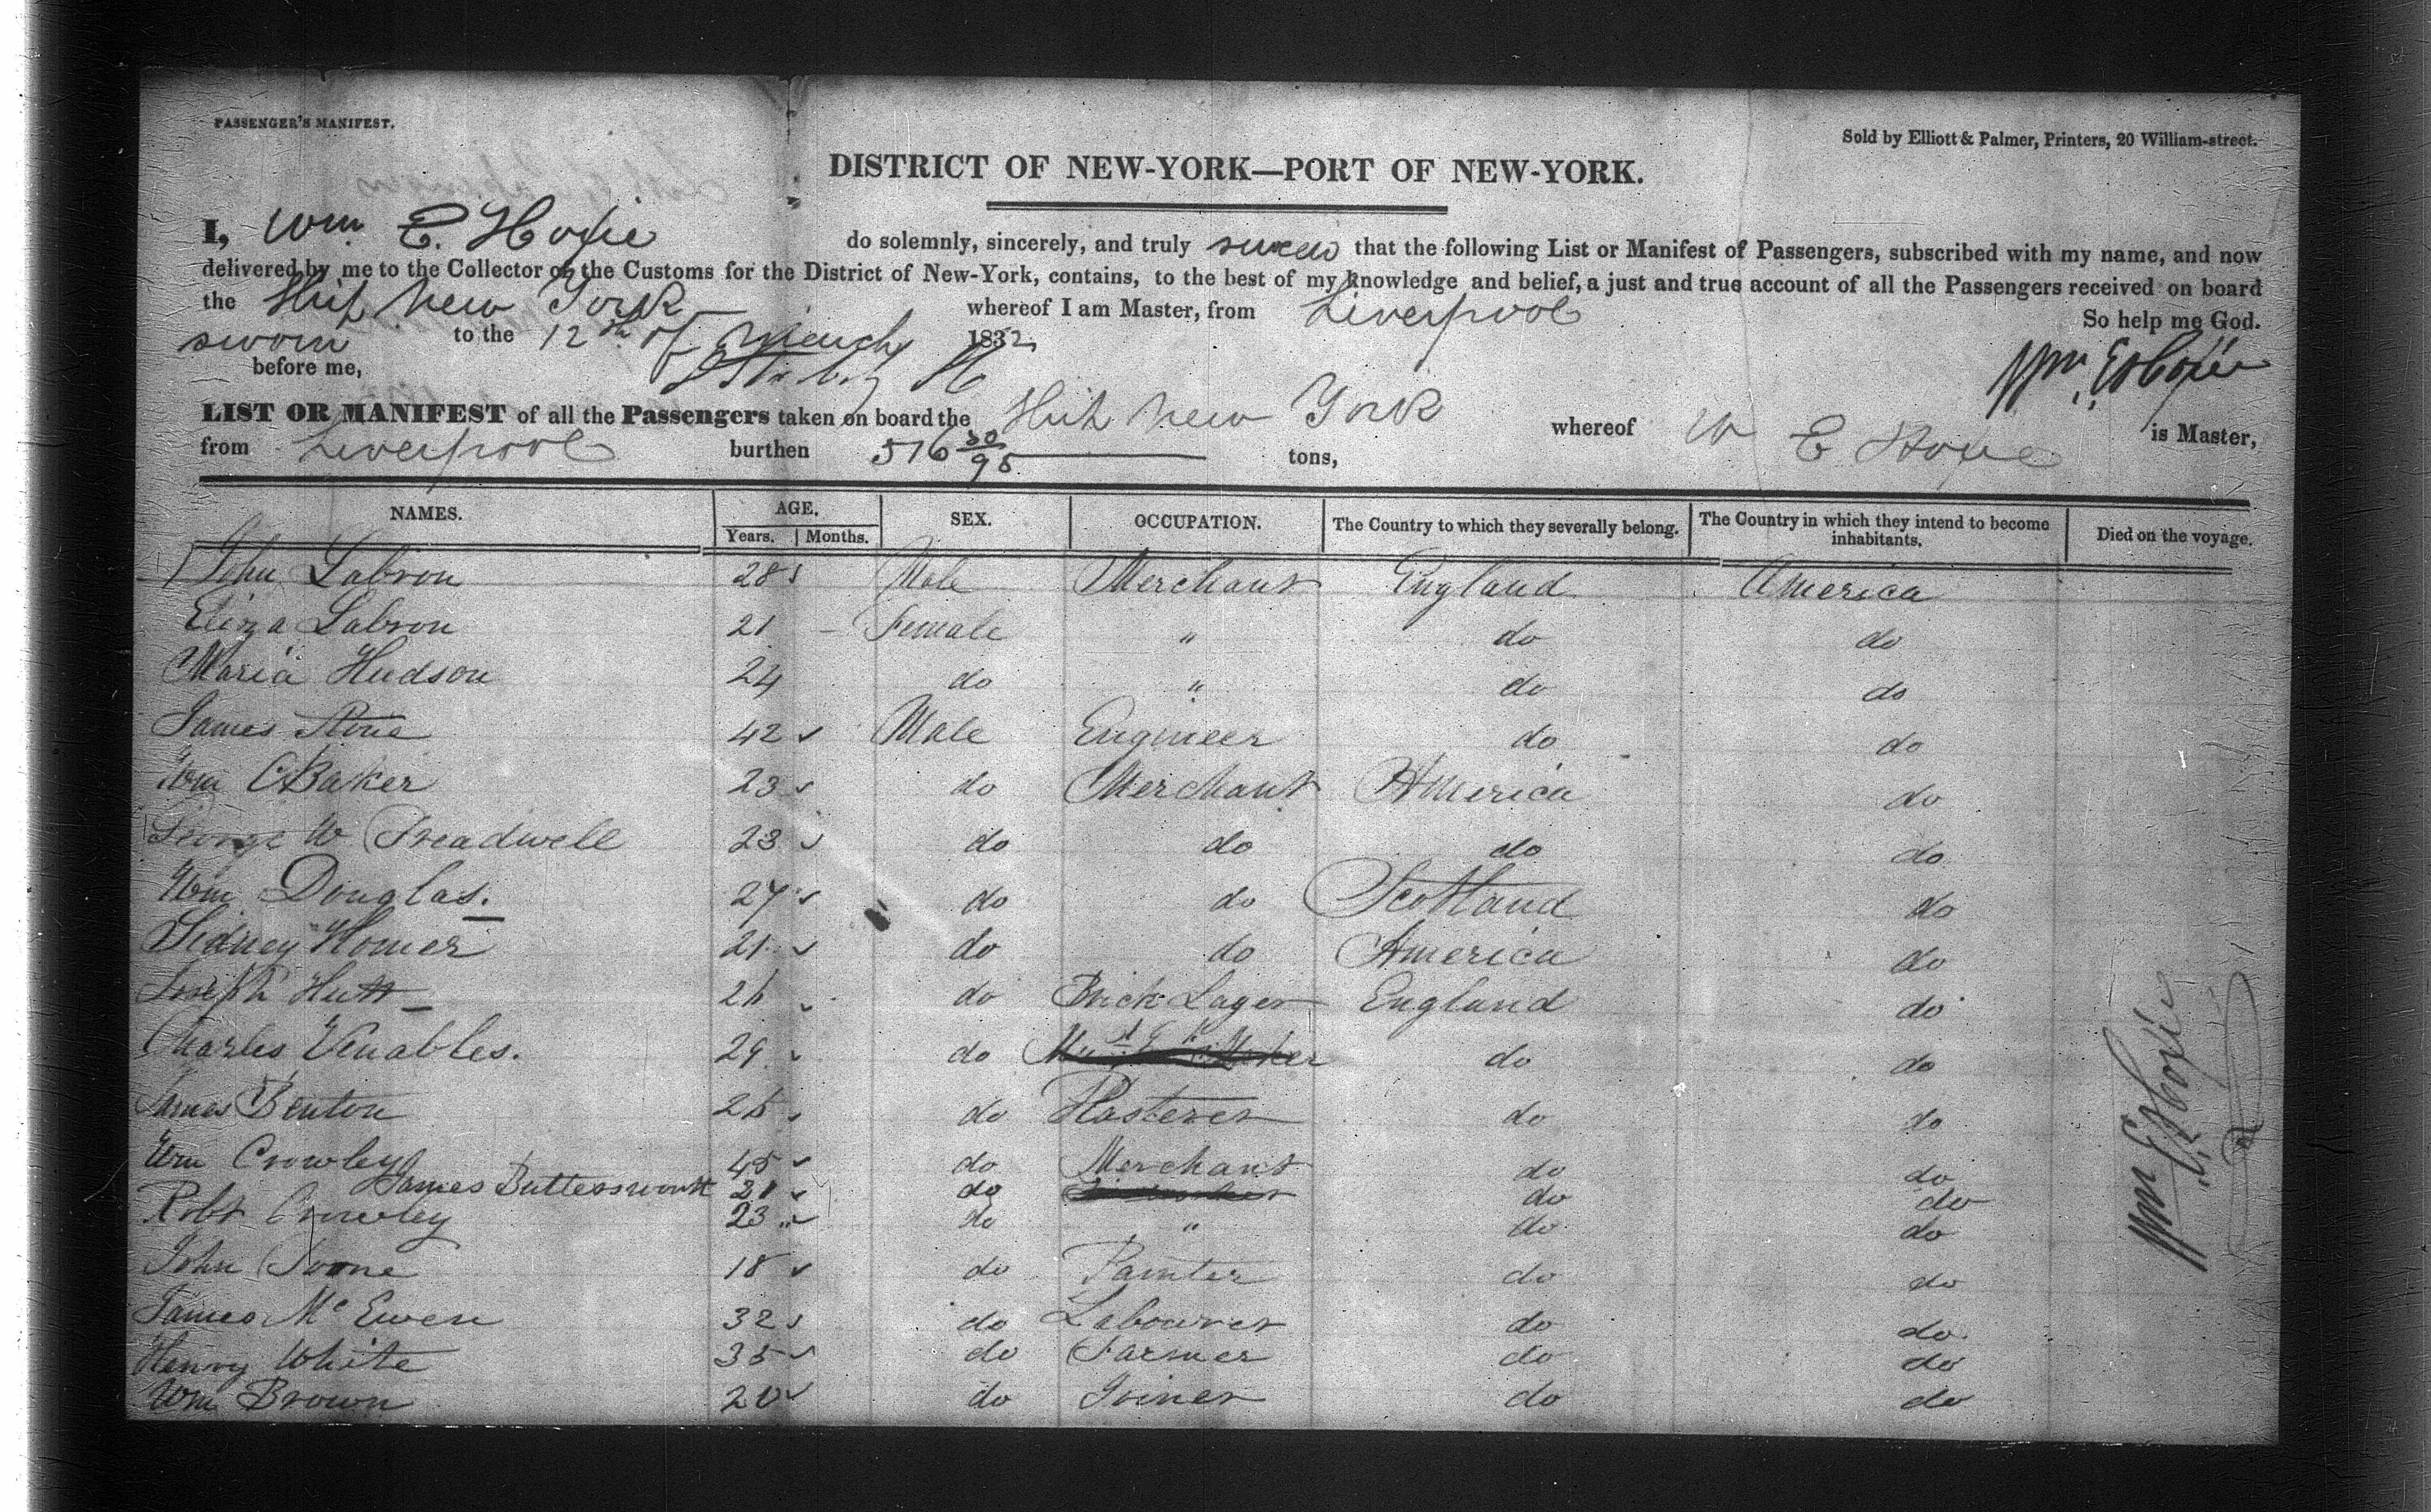 PASSENGER'S MANIFEST.
Sold by Elliott & Palmer, Printers, 20 William-street.
DISTRICT OF NEW-YORK—PORT OF NEW-YORK.
I, Wm. E. Hoxie do solemnly, sincerely, and truly swear that the following List or Manifest of Passengers, subscribed with my name, and now
delivered by me to the Collector of the Customs for the District of New-York, contains, to the best of my knowledge and belief, a just and true account of all the Passengers received on board
the Ship New York whereof I am Master, from Liverpool So help me God.
sworn to the 12th of March 1832
before me, Wm. E. Hoxie
LIST OR MANIFEST of all the Passengers taken on board the Ship New York whereof W E Hoxie is Master,
from Liverpool burthen 516 30/95 tons,
NAMES. AGE. SEX. OCCUPATION. The Country to which they severally belong. The Country in which they intend to become inhabitants. Died on the voyage.
Years. Months.
John Labron 28 Male Merchant England America
Eliza Labron 21 Female " do do
Maria Hudson 24 do " do do
James Stone 42 Male Engineer do do
Wm C Baker 23 do Merchant America do
George W Treadwell 23 do do do do
Wm Douglas. 27 do do Scotland do
Sidney Homer 21 do do America do
Joseph Hutt 26 do Brick Layer England do
Charles Venables. 29 do do do
James Benton 26 do Plasterer do do
Wm Crowley 45 do Merchant do do
James Buttersworth 21 do do do
Robt Crowley 23 do " do do
John Soone 18 do Painter do do
James Mc Ewen 32 do Labourer do do
Henry White 35 do Farmer do do
Wm Brown 20 do Joiner do do
Wm. E. Hoxie